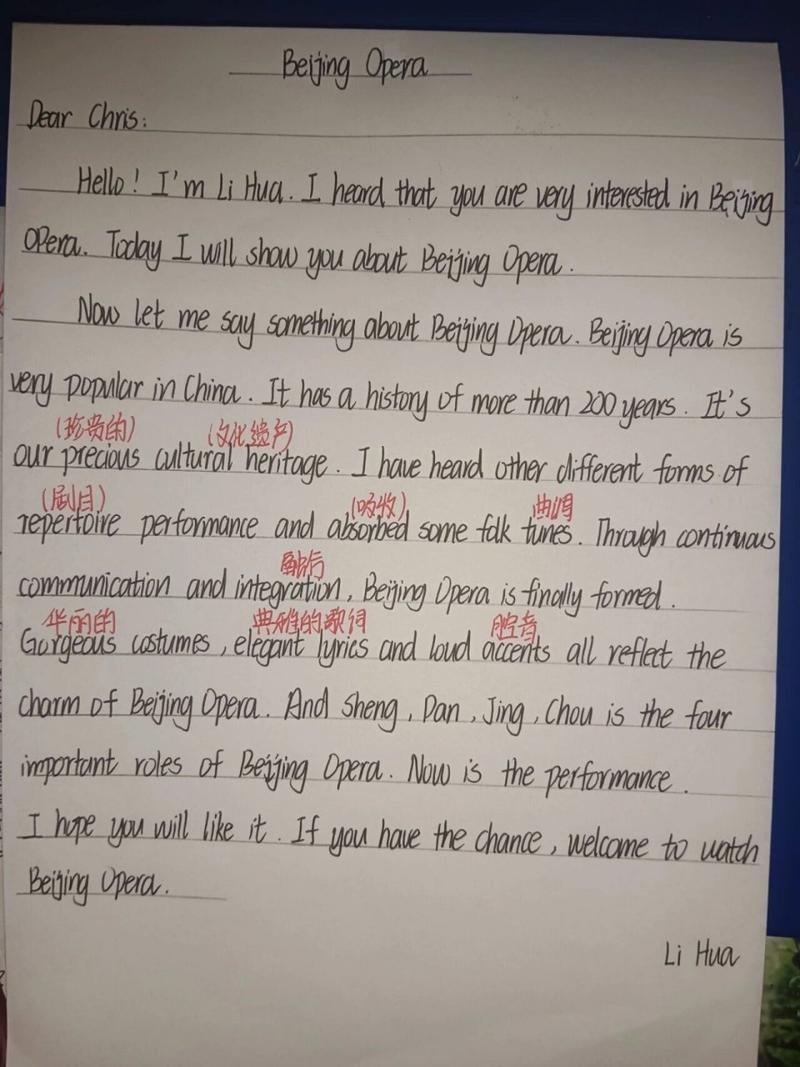 Beijing Opera
Dear Chris:
Hello! I'm Li Hua. I heard that you are very interested in Beijing
Opera. Today I will show you about Beijing Opera.
Now let me say something about Beijing Opera. Beijing Opera is
very popular in China. It has a history of more than 200 years. It's
(珍贵的) (文化遗产)
our precious cultural heritage. I have heard other different forms of
(剧目) (吸收) 曲调
repertoire performance and absorbed some folk tunes. Through continuous
融合
communication and integration, Beijing Opera is finally formed.
华丽的 典雅的歌词 腔音
Gorgeous costumes, elegant lyrics and loud accents all reflect the
charm of Beijing Opera. And Sheng, Dan, Jing, Chou is the four
important roles of Beijing Opera. Now is the performance.
I hope you will like it. If you have the chance, welcome to watch
Beijing Opera.
Li Hua